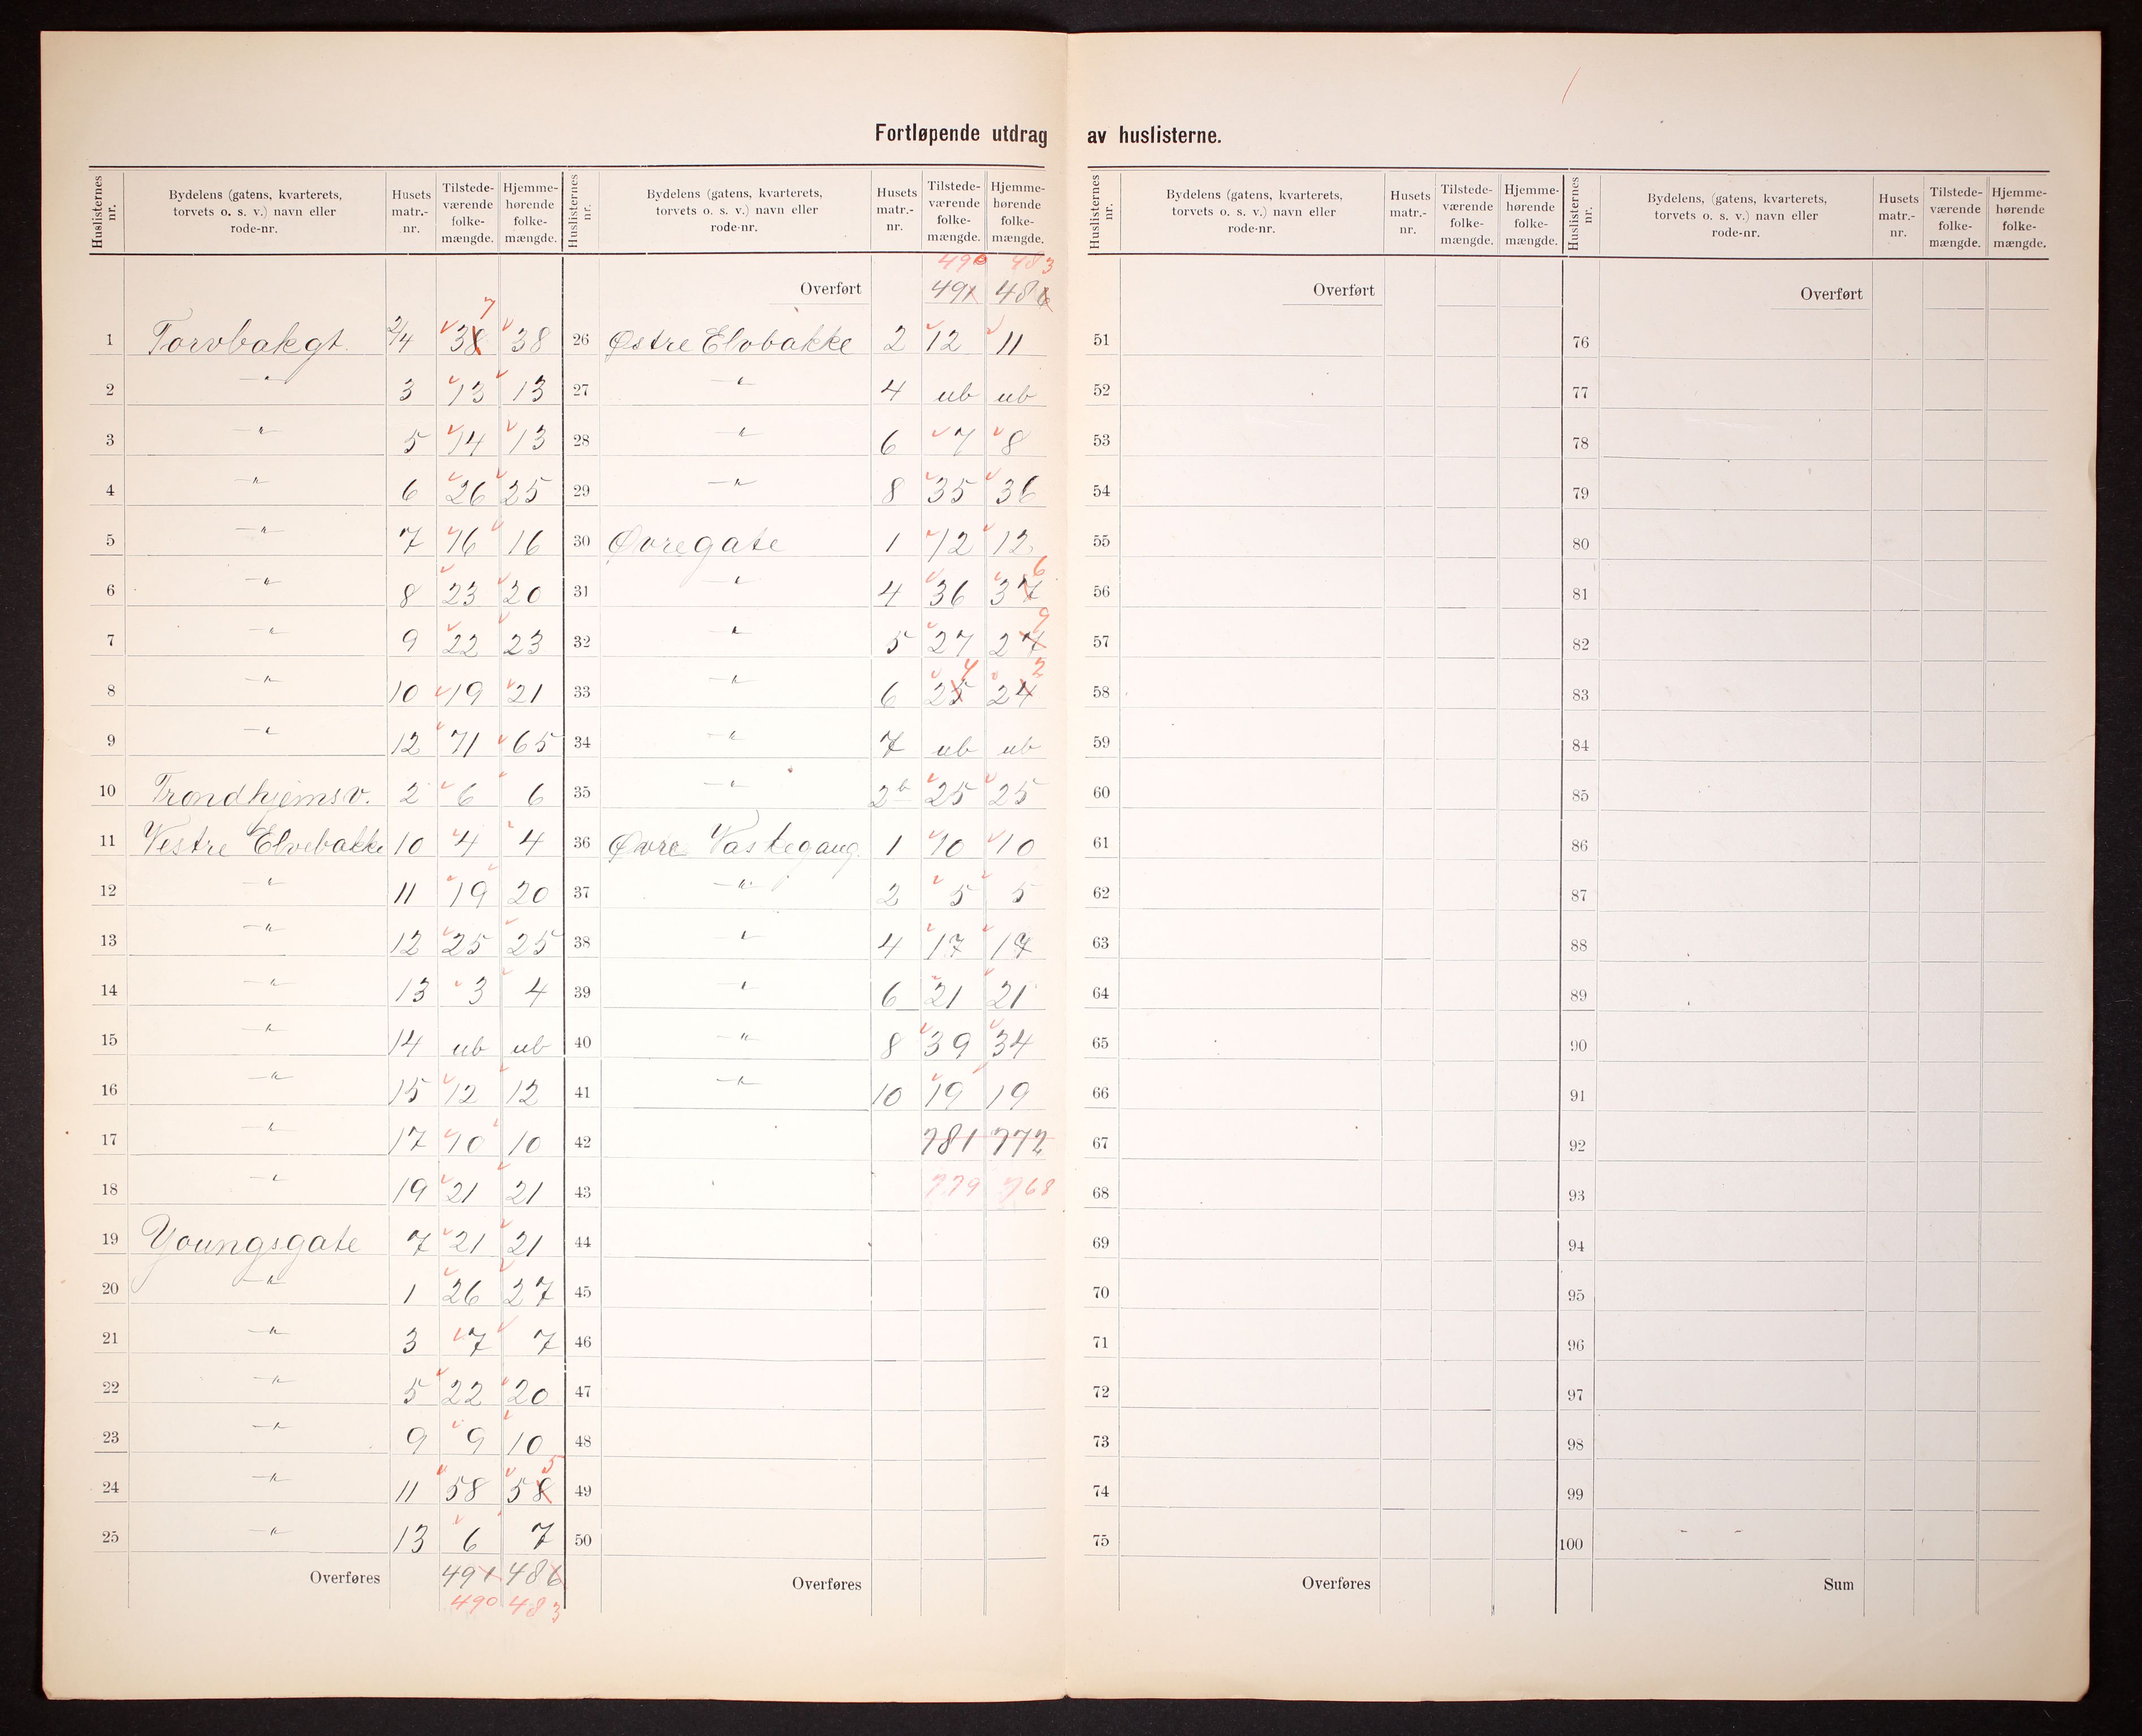 Fortløpende utdrag av huslisterne.
Huslisternes nr. | Bydelens (gatens, kvarterets, torvets o. s. v.) navn eller rode-nr. | Husets matr.-nr. | Tilstede-værende folke-mængde. | Hjemme-hørende folke-mængde.
1 Torvbakgt. 2/4 38 7 38
2 —"— 3 13 13
3 —"— 5 14 13
4 —"— 6 26 25
5 —"— 7 16 16
6 —"— 8 23 20
7 —"— 9 22 23
8 —"— 10 19 21
9 —"— 12 71 65
10 Trondhjemsv. 2 6 6
11 Vestre Elvebakke 10 4 4
12 —"— 11 19 20
13 —"— 12 25 25
14 —"— 13 3 4
15 —"— 14 ub ub
16 —"— 15 12 12
17 —"— 17 10 10
18 —"— 19 21 21
19 Youngsgate 7 21 21
20 —"— 1 26 27
21 —"— 3 7 7
22 —"— 5 22 20
23 —"— 9 9 10
24 —"— 11 58 58 5
25 —"— 13 6 7
Overføres 491 486
490 483
Huslisternes nr. | Bydelens (gatens, kvarterets, torvets o. s. v.) navn eller rode-nr. | Husets matr.-nr. | Tilstede-værende folke-mængde. | Hjemme-hørende folke-mængde.
490 483
Overført 491 486
26 Østre Elvbakke 2 12 11
27 —"— 4 ub ub
28 —"— 6 7 8
29 —"— 8 35 36
30 Øvregate 1 12 12
31 —"— 4 36 37 6
32 —"— 5 27 27 9
33 —"— 6 25 4 24 2
34 —"— 7 ub ub
35 —"— 2b 25 25
36 Øvre Vaskegang. 1 10 10
37 —"— 2 5 5
38 " 4 17 17
39 " 6 21 21
40 —"— 8 39 34
41 —"— 10 19 19
42 781 772
43 779 768
44
45
46
47
48
49
50
Overføres
Huslisternes nr. | Bydelens (gatens, kvarterets, torvets o. s. v.) navn eller rode-nr. | Husets matr.-nr. | Tilstede-værende folke-mængde. | Hjemme-hørende folke-mængde.
Overført
51
52
53
54
55
56
57
58
59
60
61
62
63
64
65
66
67
68
69
70
71
72
73
74
75
Overføres
Huslisternes nr. | Bydelens, (gatens, kvarterets, torvets o. s. v.) navn eller rode-nr. | Husets matr.-nr. | Tilstede-værende folke-mængde. | Hjemme-hørende folke-mængde.
Overført
76
77
78
79
80
81
82
83
84
85
86
87
88
89
90
91
92
93
94
95
96
97
98
99
100
Sum